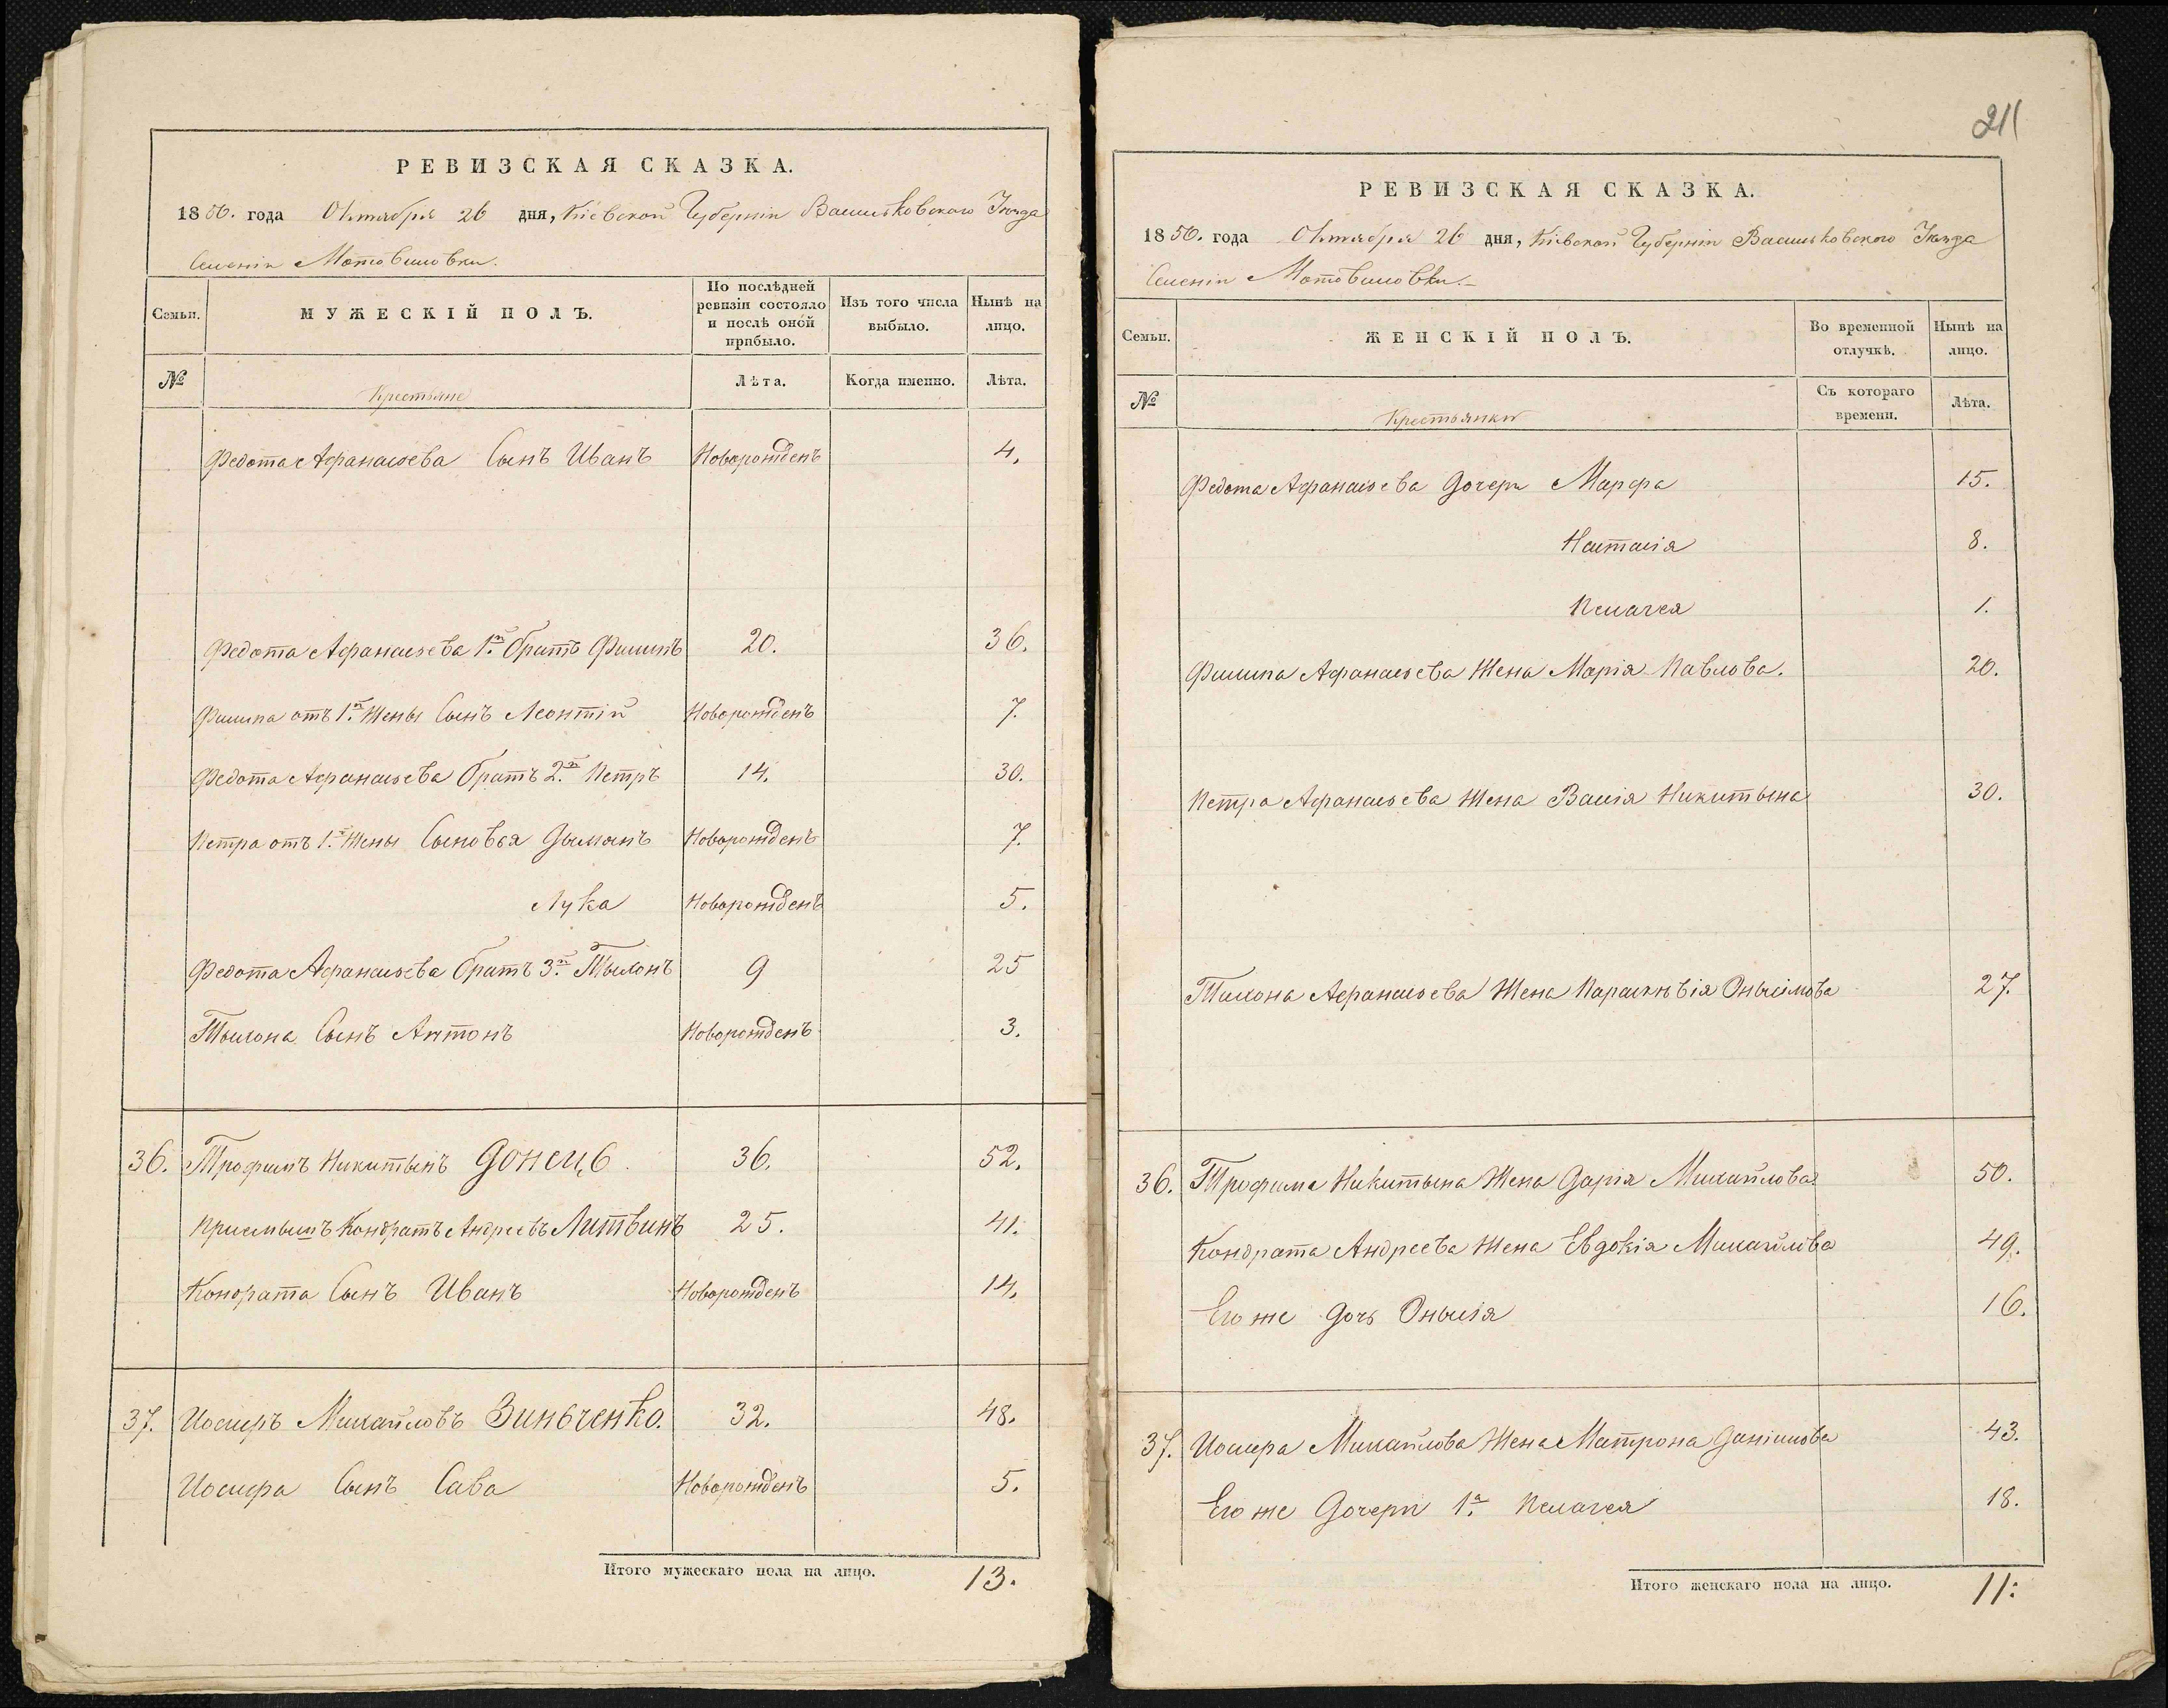 РЕВИЗСКАЯ СКАЗКА.
1850. года Октября 26 дня, Кіевской Губерніи Васильковского Уѣзда
Селеніи Мотовиловки.
Семьи.
МУЖЕСКІЙ ПОЛЪ.
По послѣдней ревизіи состояло и послѣ оной прибыло.
Изъ того числа выбыло.
Нынѣ на лицо.
№
Крестьяне
Лѣта.
Когда именно.
Лѣта.
Федота Афанасьева Сынъ Иванъ Новорожденъ 4.
Федота Афанасьева 1й братъ Филипъ 20. 36.
Филипа отъ 1й Жены Сынъ Леонтій Новорожденъ 7.
Федота Афанасьева братъ 2й Петръ 14. 30.
Петра отъ 1й Жены Сыновья Дымянъ Новорожденъ 7.
Лука Новорожденъ 5.
Федота Афанасьева братъ 3й Тыхонъ 9 25
Тыхона Сынъ Антонъ Новорожденъ 3.
36. Трофимъ Никитынъ Донецъ 36. 52.
Приемышъ Кондратъ Андреевъ Литвинъ 25. 41.
Кондрата Сынъ Иванъ Новорожденъ 14.
37. Иосифъ Михайловъ Зинъченко. 32. 48.
Иосифа Сынъ Сава Новорожденъ 5.
Итого мужескаго пола на лицо. 13.
211
РЕВИЗСКАЯ СКАЗКА.
1850. года Октября 26 дня, Кіевской Губерніи Васильковского Уѣзда
Селеніи Мотовиловки.
Семьи.
ЖЕНСКІЙ ПОЛЪ.
Во временной отлучкѣ.
Нынѣ на лицо.
№
Крестьянки
Съ котораго времени.
Лѣта.
Федота Афанасьева дочери Марфа 15.
Настасія 8.
Пелагея 1.
Филипа Афанасьева Жена Марія Павлова. 20.
Петра Афанасьева Жена Васія Никитына 30.
Тихона Афанасьева Жена Параскѣвія Онысімова 27.
36. Трофима Никитына Жена Дарія Михайлова. 50.
Кондрата Андреева Жена Евдокія Михайлова 49.
Его же дочь Онысія 16.
37. Иосифа Михайлова Жена Матрона Даніилова 43.
Его же Дочери 1я Пелагея 18.
Итого женскаго пола на лицо. 11: